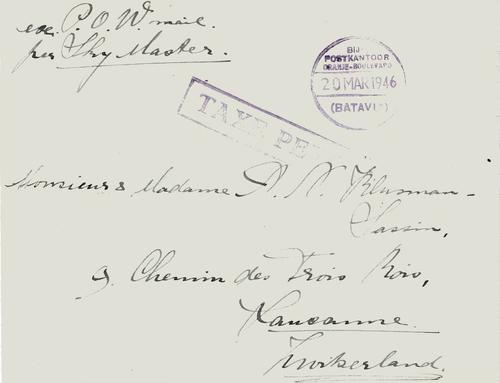 ex. P.O.W. mail.
per Sky Master.
BIJ
POSTKANTOOR
ORANJE-BOULEVARD
20 MAR 1946
(BATAVIA)
TAXE PE
Monsieur & Madame A. N.
Sassin,
9. Chemin des Trois Rois,
Lausanne.
Zwitzerland.